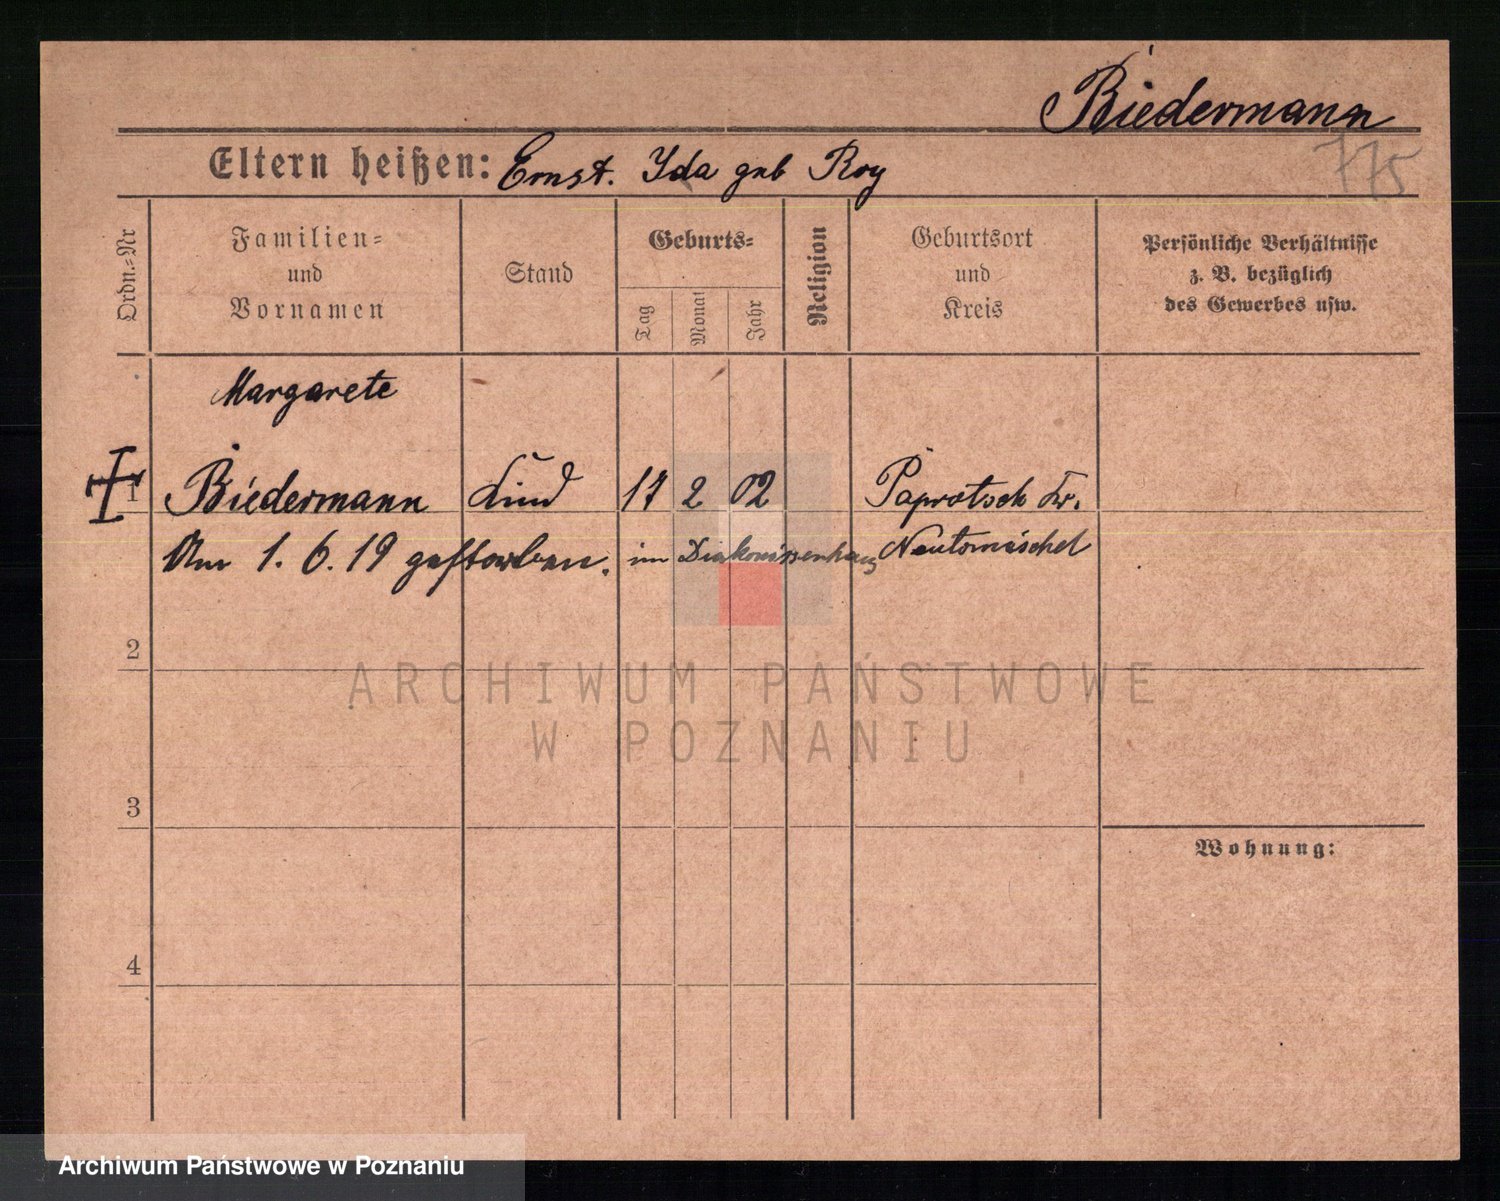 Biedermann
Eltern heißen: Ernst. Ida geb Roy
775
Ordn.=Nr
Familien=
und
Vornamen
Stand
Geburts=
Tag
Monat
Jahr
Religion
Geburtsort
und
Kreis
Persönliche Verhältnisse
z. B. bezüglich
des Gewerbes usw.
Margarete
1 Biedermann Kind 17 2 02 Paprotsch Kr.
Am 1. 6. 19 gestorben. im Diakonissenhaus Neutomischel
2
ARCHIWUM PAŃSTWOWE
W POZNANIU
3
Wohnung:
4
Archiwum Państwowe w Poznaniu